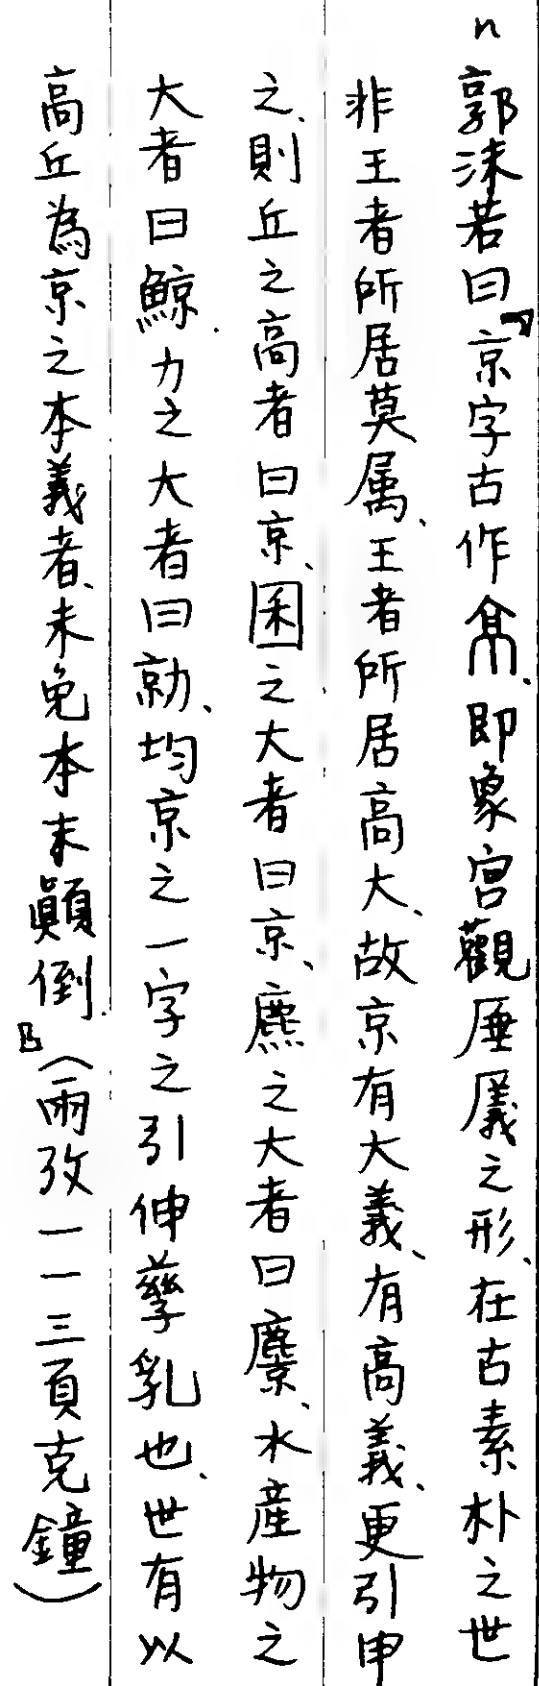 n
郭沫若曰『京字古作㐭、即象宫觀厜㕒之形、在古素朴之世
非王者所居莫属、王者所居高大、故京有大義、有高義、更引申
之、則丘之高者曰京、囷之大者曰京、麃之大者曰麖、水產物之
大者曰鯨、力之大者曰勍、均京之一字之引伸孳乳也、世有以
高丘為京之本義者、未免本末顛倒』(兩攷一一三頁克鐘)